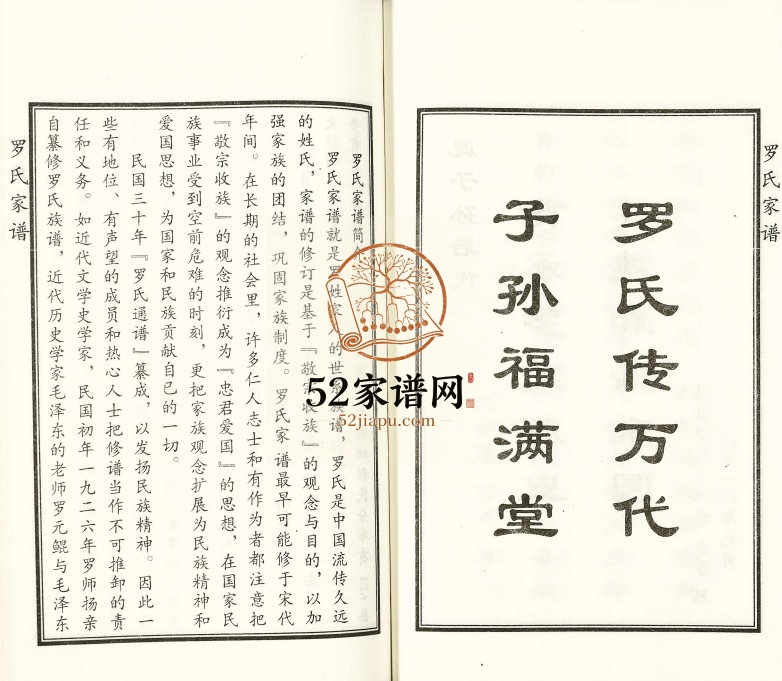 罗氏家谱
罗氏传万代
子孙福满堂
罗氏家谱简
罗氏家谱就是罗姓家 的世 族谱，罗氏是中国流传久远
的姓氏，家谱的修订是基于『敬宗收族』的观念与目的，以加
强家族的团结，巩固家族制度。罗氏家谱最早可能修于宋代
年间。在长期的社会里，许多仁人志士和有作为者都注意把
『敬宗收族』的观念推衍成为『忠君爱国』的思想，在国家民
族事业受到空前危难的时刻，更把家族观念扩展为民族精神和
爱国思想，为国家和民族贡献自己的一切。
民国三十年『罗氏通谱』纂成，以发扬民族精神。因此一
些有地位、有声望的成员和热心人士把修谱当作不可推卸的责
任和义务。如近代文学史学家，民国初年一九二六年罗师扬亲
自纂修罗氏族谱，近代历史学家毛泽东的老师罗元鲲与毛泽东
罗氏家谱
52家谱网
52jiapu.com